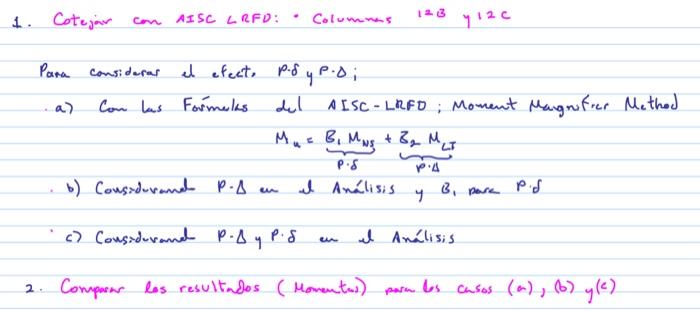 1. Cotejar con AISC LRFD: • Columnas 12B y 12C
Para considerar el efecto P·δ y P·Δ;
a) Con las Formulas del AISC-LRFD; Moment Magnifier Method
Mu = B1 MNS + B2 MLT
P·δ P·Δ
b) Considerand P-Δ en el Análisis y B1 para P·δ
c) Considerand P-Δ y P·δ en el Análisis
2. Comparar los resultados (Momentos) para los casos (a), (b) y (c)